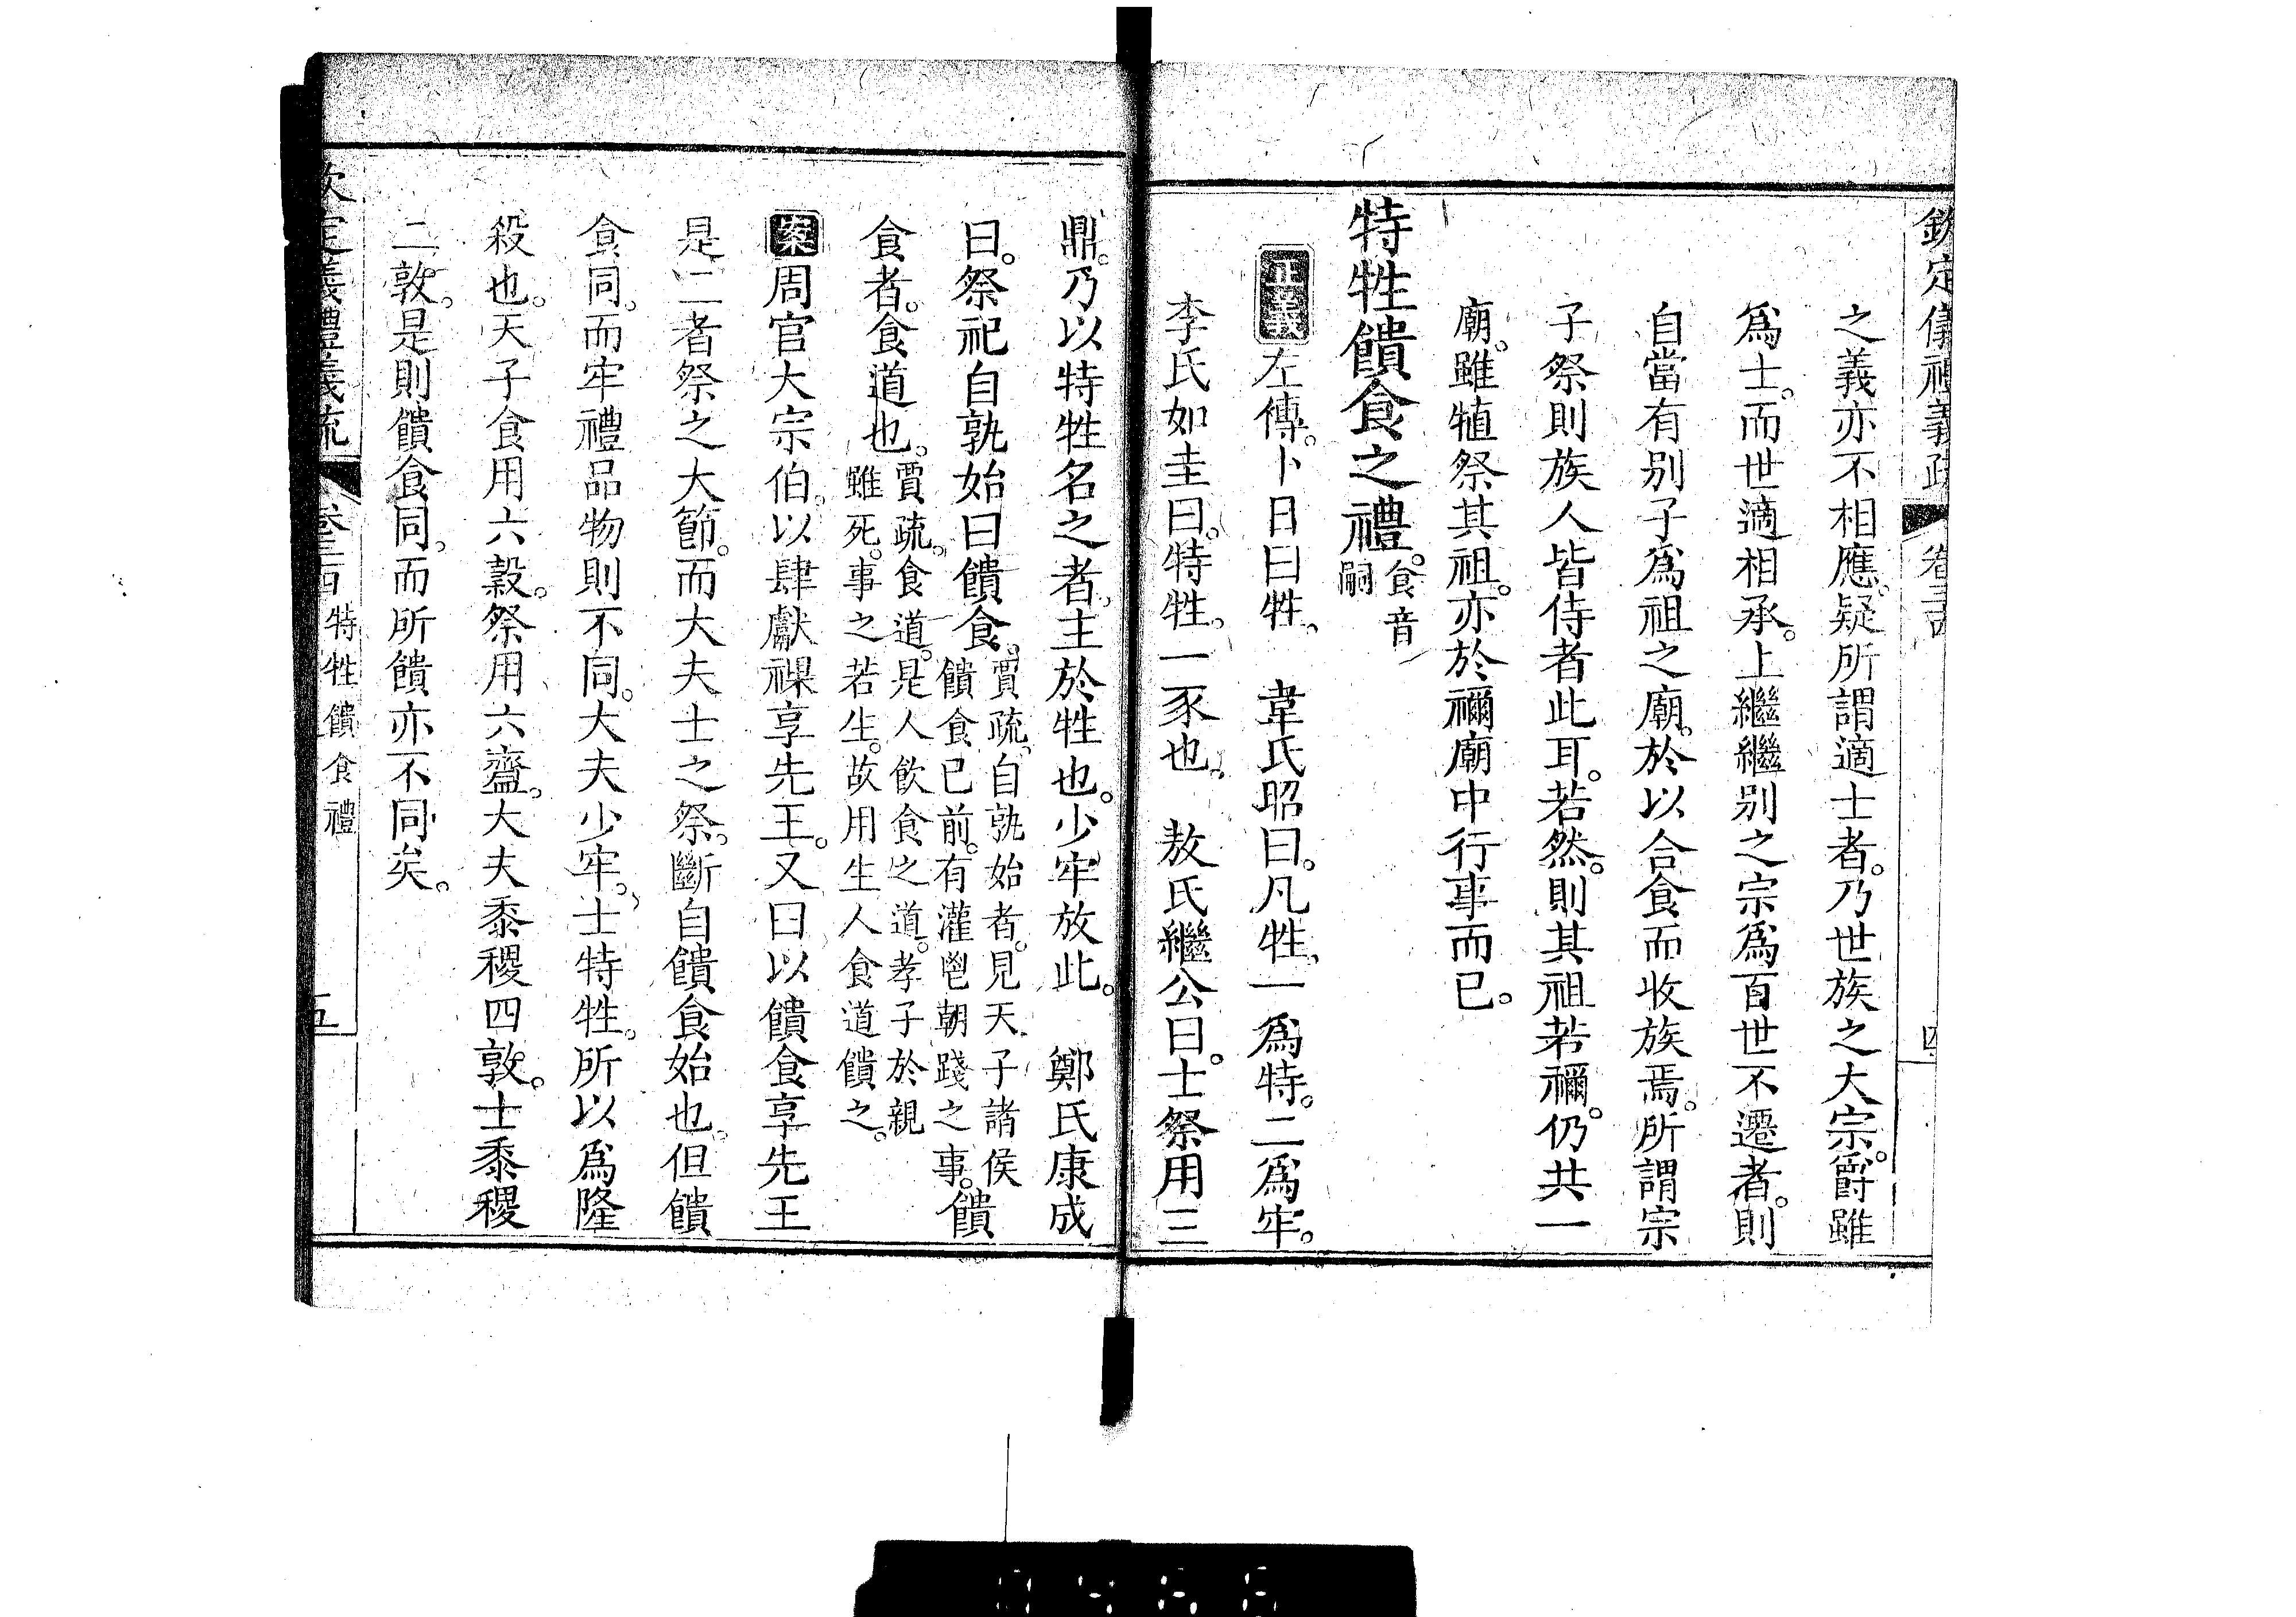 欽定儀禮義疏 卷三 四
之義亦不相應。疑所謂適士者。乃世族之大宗。爵雖
爲士。而世適相承。上繼繼別之宗爲百世不遷者。則
自當有别子爲祖之廟。於以合食而收族焉。所謂宗
子祭則族人皆侍者此耳。若然。則其祖若禰。仍共一
廟。雖犆祭其祖。亦於禰廟中行事而已。
特牲饋食之禮。食音嗣
正義 左傳。卜日曰牲。 韋氏昭曰。凡牲。一爲特。二爲牢。
李氏如圭曰。特牲。一豕也。 敖氏繼公曰。士祭用三
鼎。乃以特牲名之者。主於牲也。少牢放此。 鄭氏康成
曰。祭祀自孰始曰饋食。賈疏。自孰始者。見天子諸侯饋食已前。有灌鬯朝踐之事。饋
食者。食道也。賈疏。食道。是人飲食之道。孝子於親雖死。事之若生。故用生人食道饋之。
案 周官大宗伯。以肆獻祼享先王。又曰以饋食享先王
是二者祭之大節。而大夫士之祭。斷自饋食始也。但饋
食同。而牢禮品物則不同。大夫少牢。士特牲。所以爲隆
殺也。天子食用六穀。祭用六齍。大夫黍稷四敦。士黍稷
二敦。是則饋食同。而所饋亦不同矣。
欽定義禮義疏 卷三四 特牲饋食禮 五